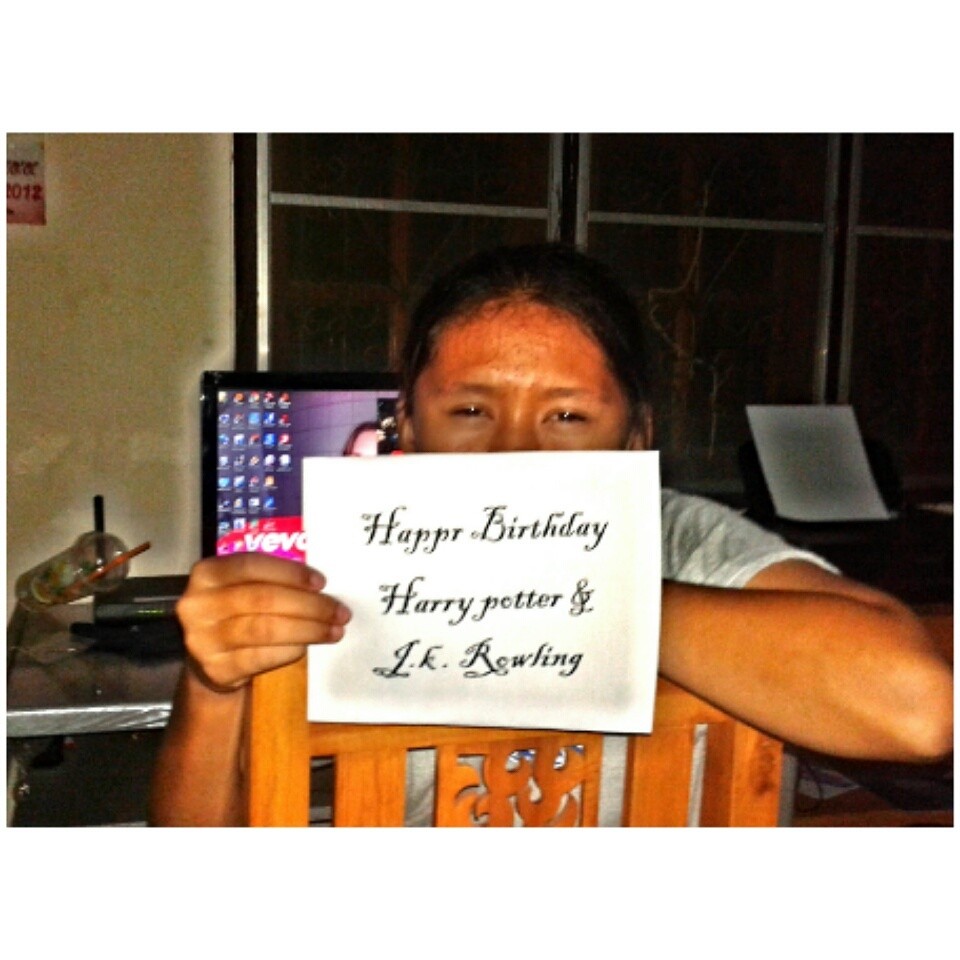 2012
vevo
Happr Birthday
Harry potter &
J.k. Rowling